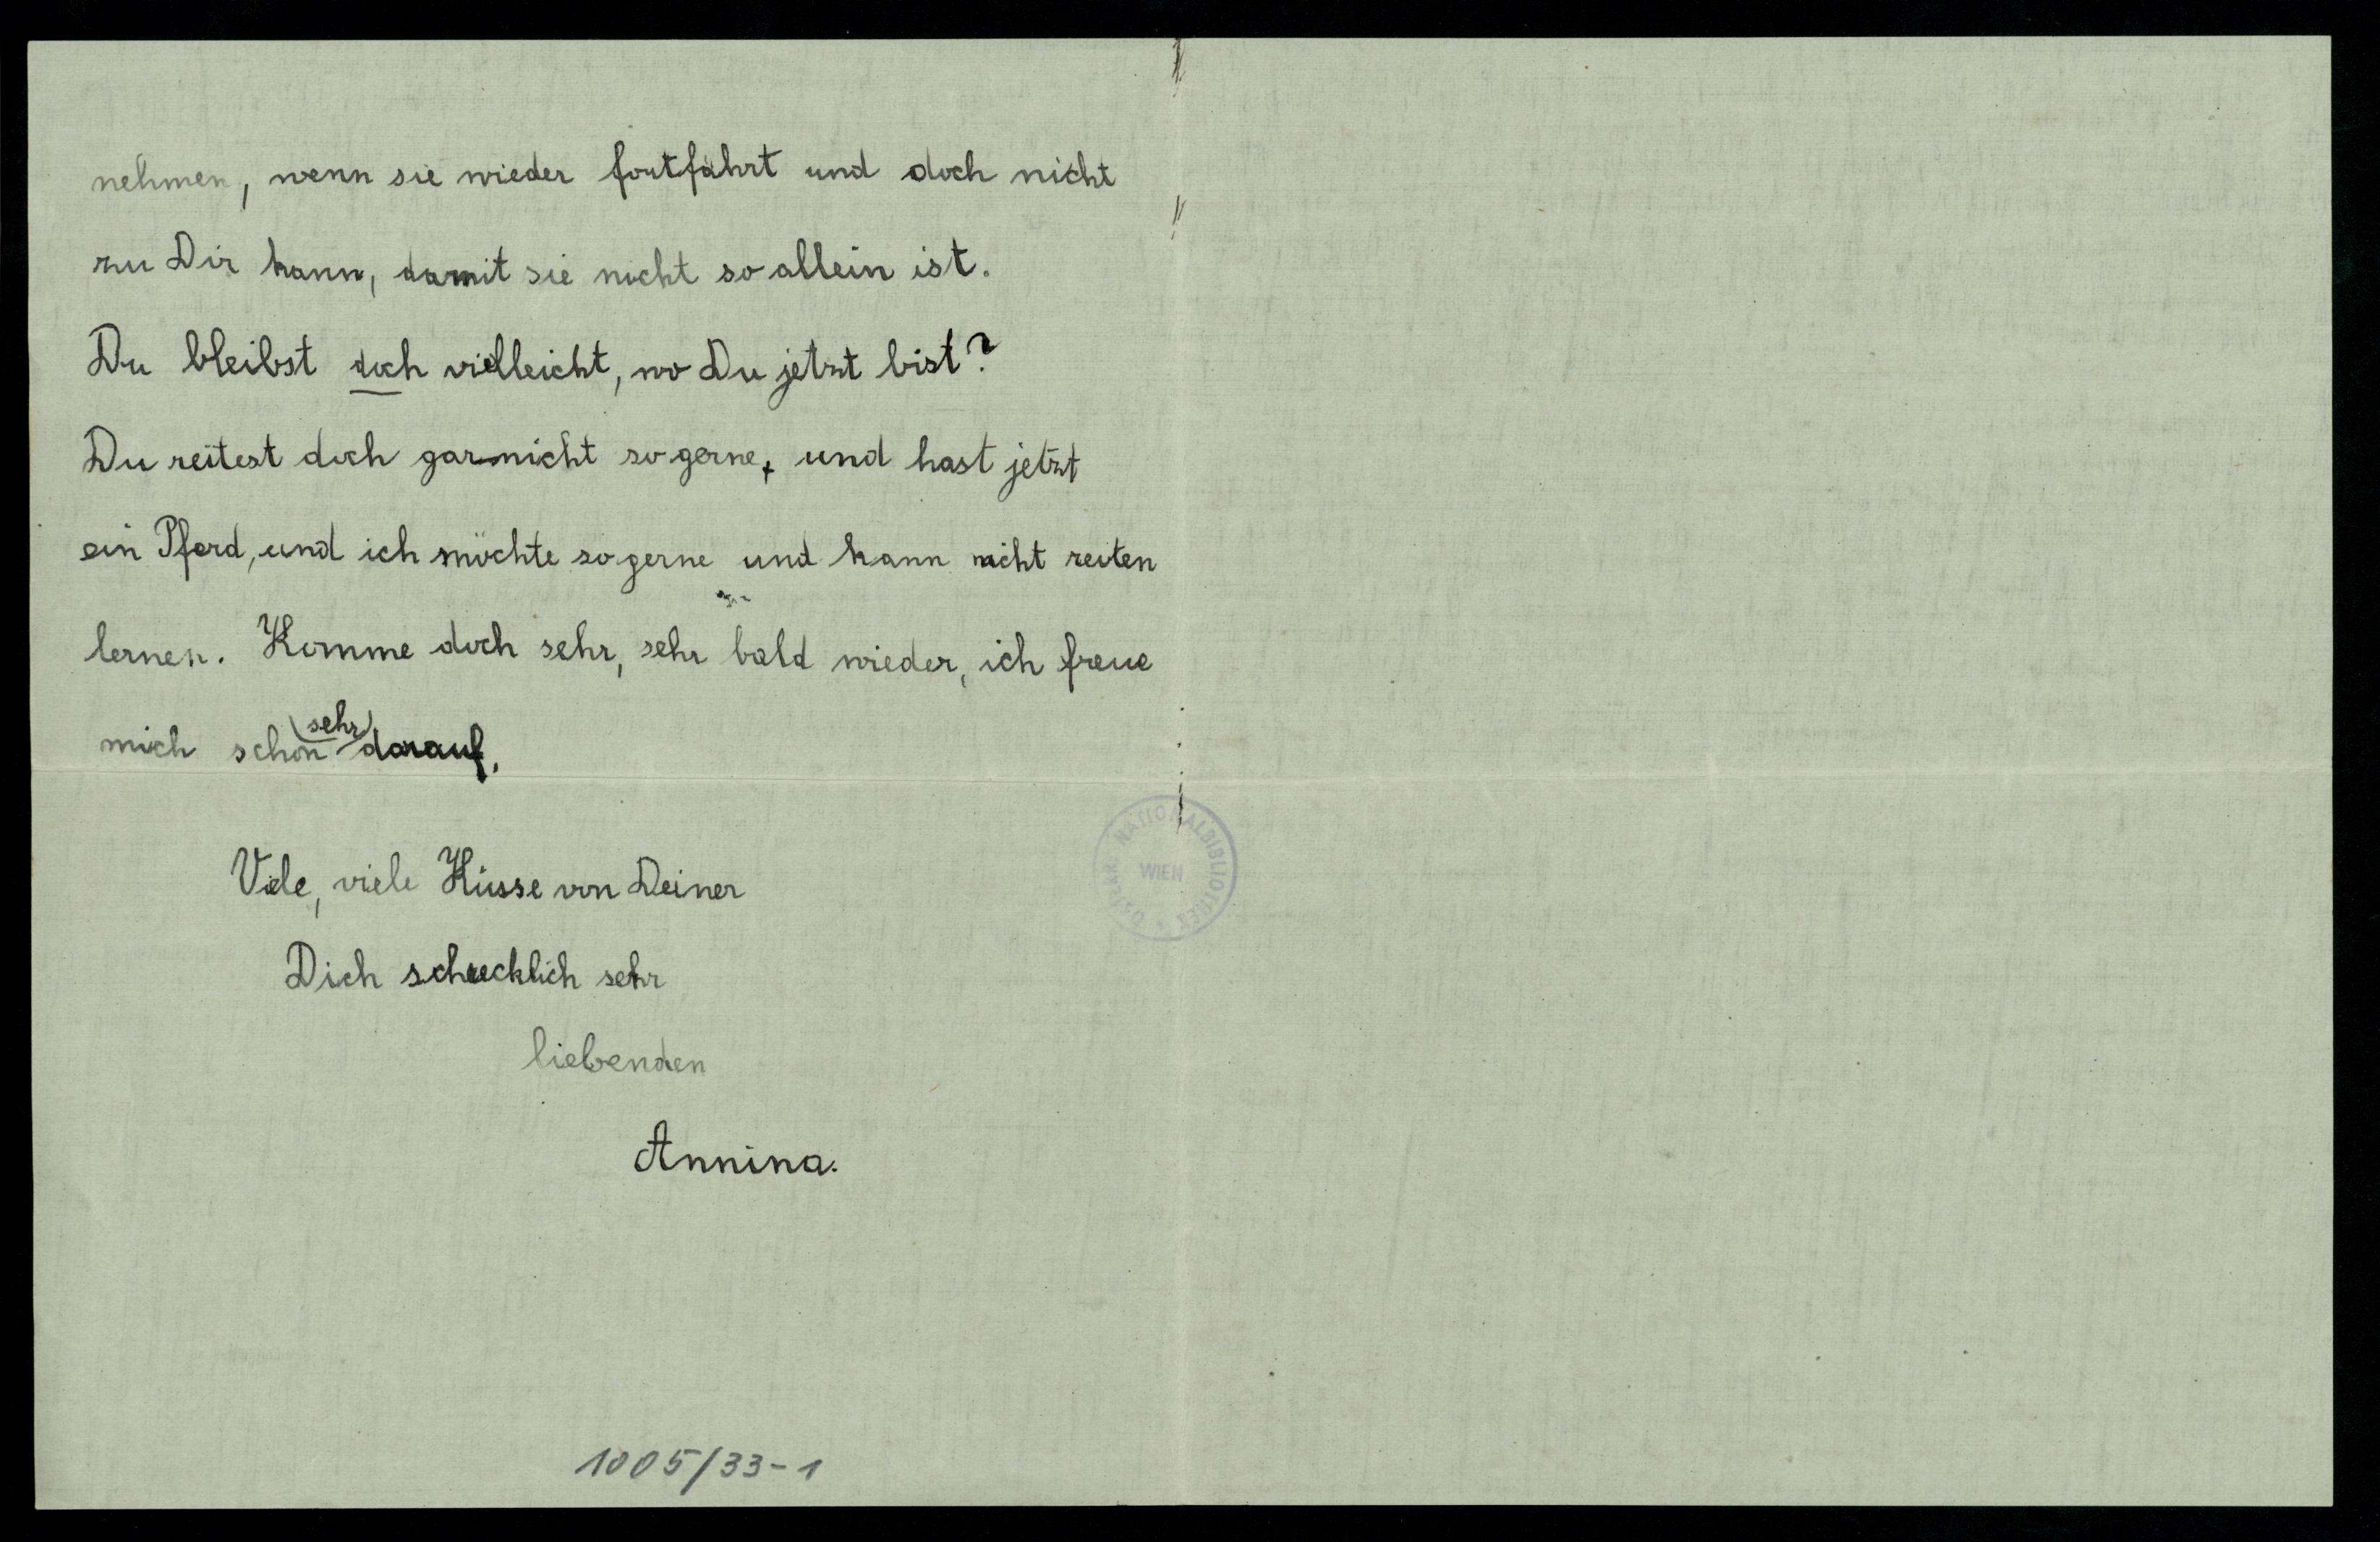 nehmen, wenn sie wieder fortfährt und doch nicht
zu Dir kann, damit sie nicht so allein ist.
Du bleibst doch vielleicht, wo Du jetzt bist?
Du reitest doch garnicht so gerne, und hast jetzt
ein Pferd, und ich möchte so gerne und kann nicht reiten
lernen. Komme doch sehr, sehr bald wieder, ich freue
mich schon sehr darauf.
Viele, viele Küsse von Deiner
Dich schrecklich sehr
liebenden
Annina.
ÖSTERR. NATIONALBIBLIOTHEK
WIEN
1005/33-1